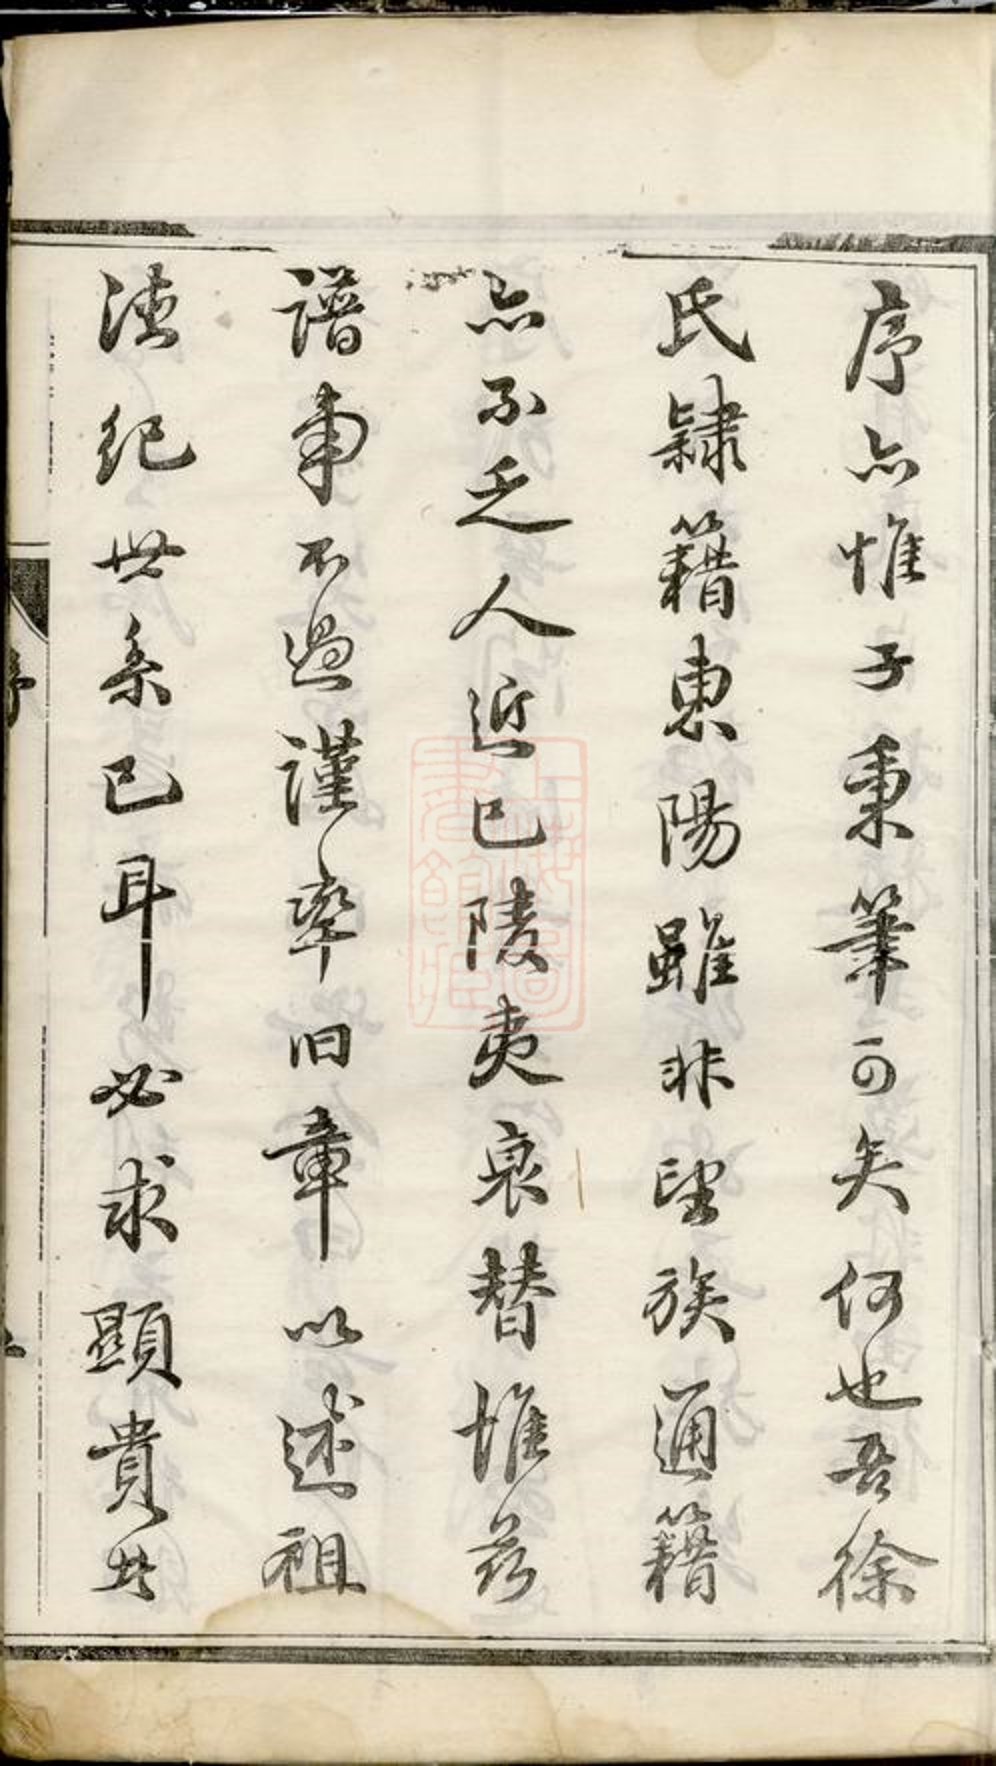 序亦惟子秉筆可矣何也吾徐
氏隸籍東陽雖非望族通籍
亦不乏人近已陵夷衰替惟茲
譜事不過謹率旧章以述祖
德紀世系已耳必求顯貴其
序
上海圖書館藏